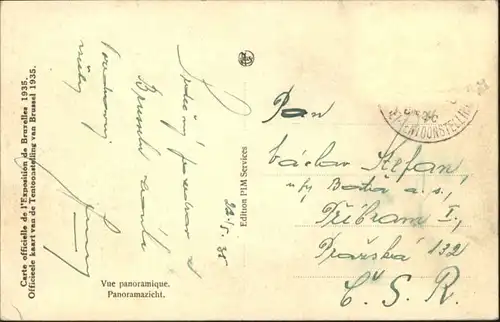 Carte officielle de l'Exposition de Bruxelles 1935.
Officieele kaart van de Tentoonstelling van Brussel 1935.
Srdečný pozdrav z
Bruselu zasílá
22/5. 35
Vue panoramique.
Panoramazicht.
Edition PIM Services
TENTOONSTELLING
Pan
Václav Štefan,
Baťa a. s.,
Příbram I,
Pražská 132
Č. S. R.